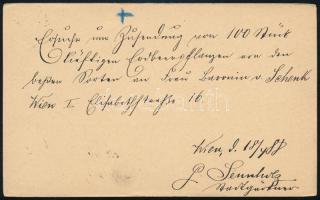 Ersuche um Zusendung von 100 Stück
kräftigen Erdbeerpflanzen von den
besten Sorten an Frau Baronin v. Schenk
Wien I. Elisabethstrasse 16.
Wien, d. 18/
G. Sennholz
Stadtgärtner